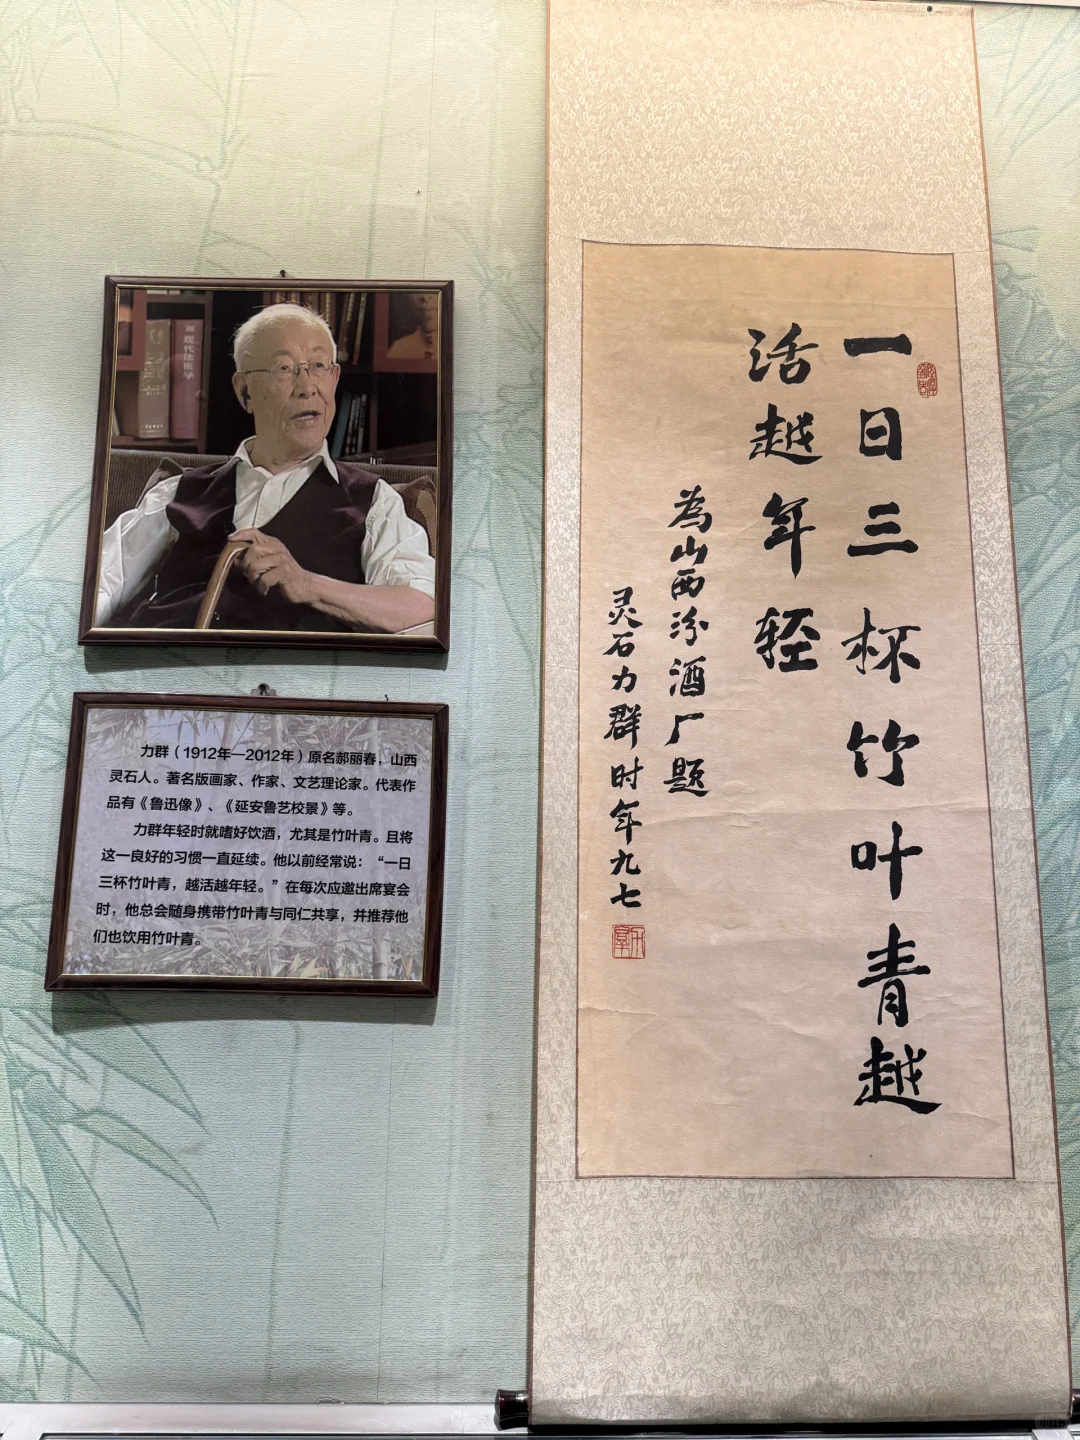 现代法医学
力群（1912年—2012年）原名郝丽春，山西
灵石人。著名版画家、作家、文艺理论家。代表作
品有《鲁迅像》、《延安鲁艺校景》等。
力群年轻时就嗜好饮酒，尤其是竹叶青。且将
这一良好的习惯一直延续。他以前经常说：“一日
三杯竹叶青，越活越年轻。”在每次应邀出席宴会
时，他总会随身携带竹叶青与同仁共享，并推荐他
们也饮用竹叶青。
一日三杯竹叶青越
活越年轻
為山西汾酒厂题
灵石力群时年九七